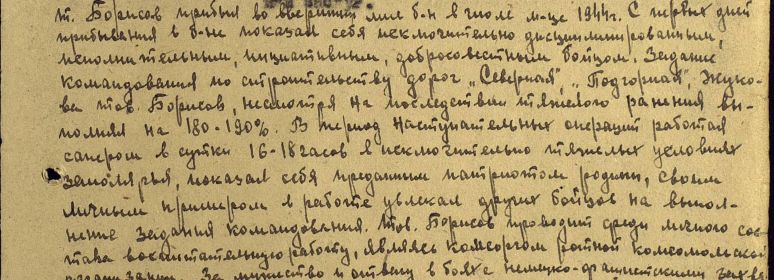 т. Борисов прибыл во вверенный мне б-н в июле м-це 1944г. С первых дней
прибывания в б-не показал себя исключительно дисциплинированным,
исполнительным, инициативным, добросовестным бойцом. Задание
командования по строительству дорог „Северная", „Подгорная", Жуко-
ва тов. Борисов, несмотря на последствия тяжелого ранения вы-
полнял на 180-190%. В период наступательных операций работал
сапером в сутки 16-18 часов в исключительно тяжелых условиях
Заполярья, показал себя преданным патриотом родины, своим
личным примером в работе увлекал других бойцов на выпол-
нение задания командования. Тов. Борисов проводит среди личного сос-
тава воспитательную работу, являясь комсоргом ротной комсомольской
организации. За мужество и отвагу в боях с немецко-фашистскими